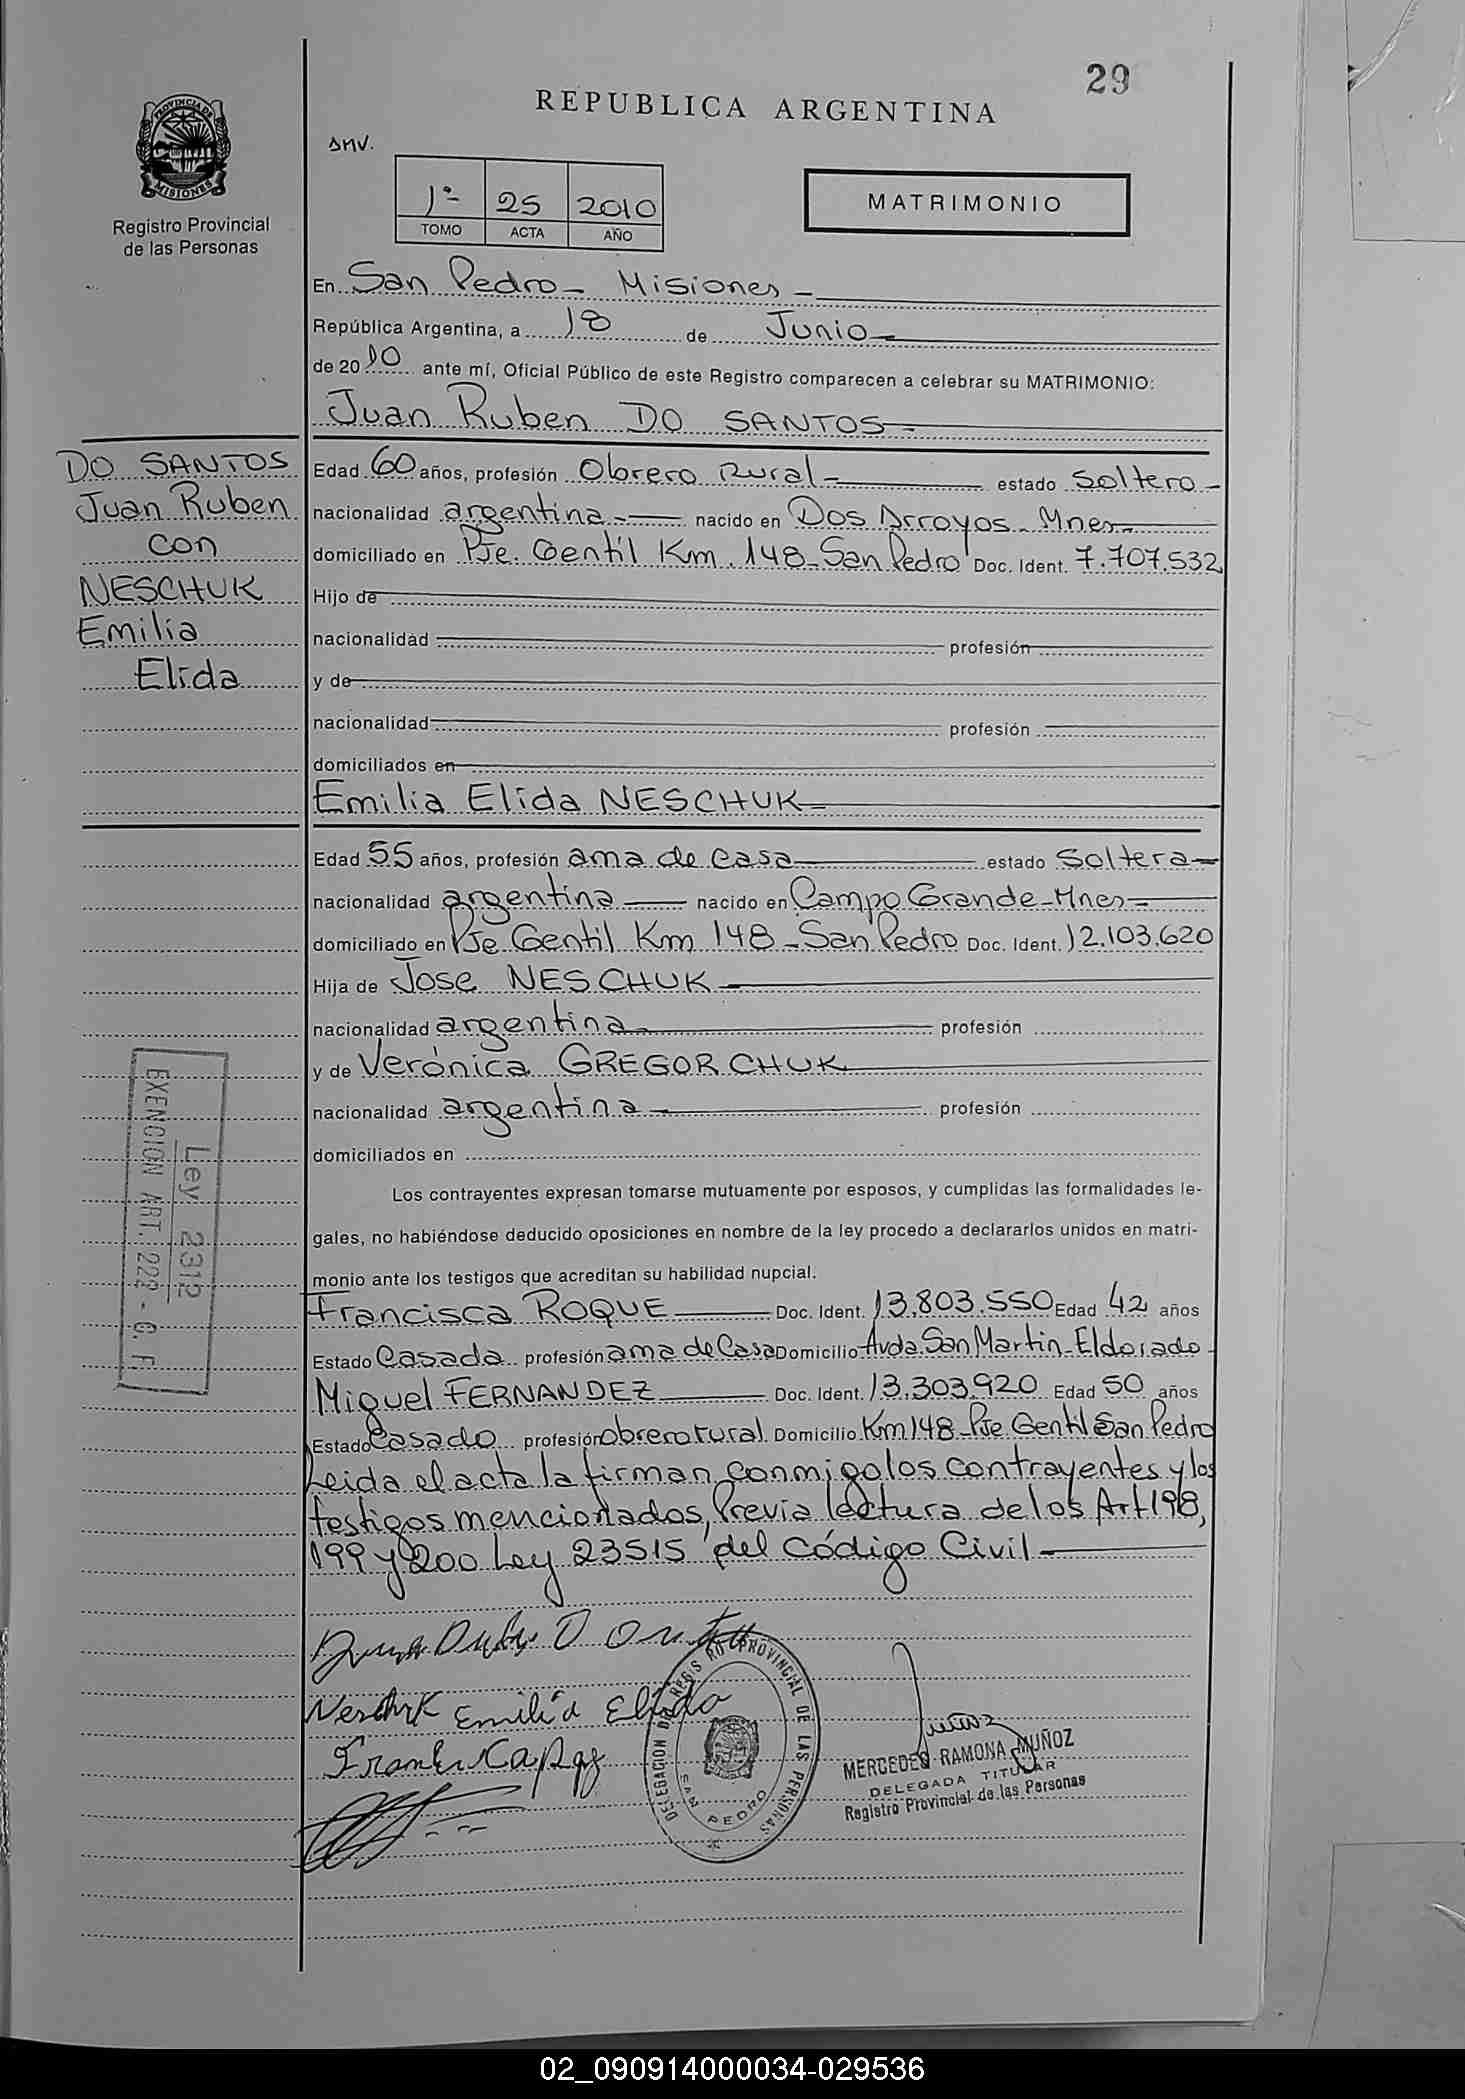 29
REPUBLICA ARGENTINA
PROVINCIA DE
MISIONES
Registro Provincial
de las Personas
1º 25 2010
TOMO ACTA AÑO
MATRIMONIO
En San Pedro - Misiones -
República Argentina, a 18 de Junio -
de 2010 ante mí, Oficial Público de este Registro comparecen a celebrar su MATRIMONIO:
Juan Ruben DO SANTOS -
DO SANTOS
Juan Ruben
con
NESCHUK
Emilia
Elida
Edad 60 años, profesión Obrero Rural - estado Soltero -
nacionalidad argentina - nacido en Dos Arroyos - Mnes -
domiciliado en Pje. Gentil Km. 148 - San Pedro Doc. Ident. 7.707.532
Hijo de
nacionalidad profesión
y de
nacionalidad profesión
domiciliados en
Emilia Elida NESCHUK -
Edad 55 años, profesión ama de casa estado Soltera -
nacionalidad argentina nacido en Campo Grande - Mnes -
domiciliado en Pje Gentil Km 148 - San Pedro Doc. Ident. 12.103.620
Hija de Jose NESCHUK -
nacionalidad argentina profesión
y de Verónica GREGORCHUK
nacionalidad argentina - profesión
domiciliados en
Ley 2312
EXENCION ART. 222 - C. F.
Los contrayentes expresan tomarse mutuamente por esposos, y cumplidas las formalidades le-
gales, no habiéndose deducido oposiciones en nombre de la ley procedo a declararlos unidos en matri-
monio ante los testigos que acreditan su habilidad nupcial.
Francisca ROQUE Doc. Ident. 13.803.550 Edad 42 años
Estado Casada profesión ama de Casa Domicilio Avda. San Martin - Eldorado -
Miguel FERNANDEZ Doc. Ident. 13.303.920 Edad 50 años
Estado Casado profesión obrero rural Domicilio Km 148 - Pje Gentil San Pedro
Leida el acta la firman conmigo los contrayentes y los
testigos mencionados, Previa lectura de los Art 198,
199 y 200 Ley 23515 del Código Civil -
Neschuk Emilia Elida
DELEGACION DE REGISTRO PROVINCIAL DE LAS PERSONAS
SAN PEDRO
MERCEDES RAMONA MUÑOZ
DELEGADA TITULAR
Registro Provincial de las Personas
02_090914000034-029536